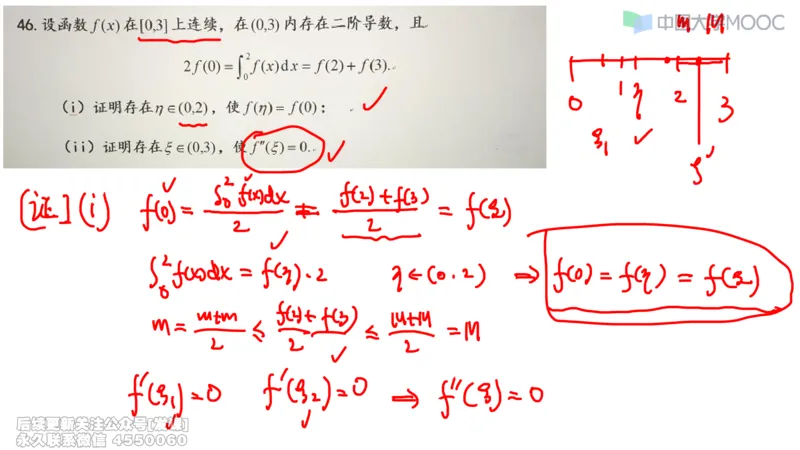 46. 设函数 f(x) 在[0,3]上连续，在(0,3)内存在二阶导数，且
2f(0)=∫₀²f(x)dx=f(2)+f(3).
（i）证明存在η∈(0,2)，使 f(η)=f(0)；
（ii）证明存在ξ∈(0,3)，使 f″(ξ)=0.
中国大学MOOC
m M
0 1 η 2 3
ξ₁ ✓ ζ
[证] (i) f(0) = ∫₀²f(x)dx / 2 = f(2)+f(3) / 2 = f(ξ)
∫₀²f(x)dx = f(η)·2 η∈(0,2) ⇒ f(0) = f(η) = f(ξ)
m = m+m / 2 ≤ f(2)+f(3) / 2 ≤ M+M / 2 = M
f′(ξ₁)=0 f′(ξ₂)=0 ⇒ f″(ξ)=0
后续更新关注公众号[发源]
永久联系微信 4550060